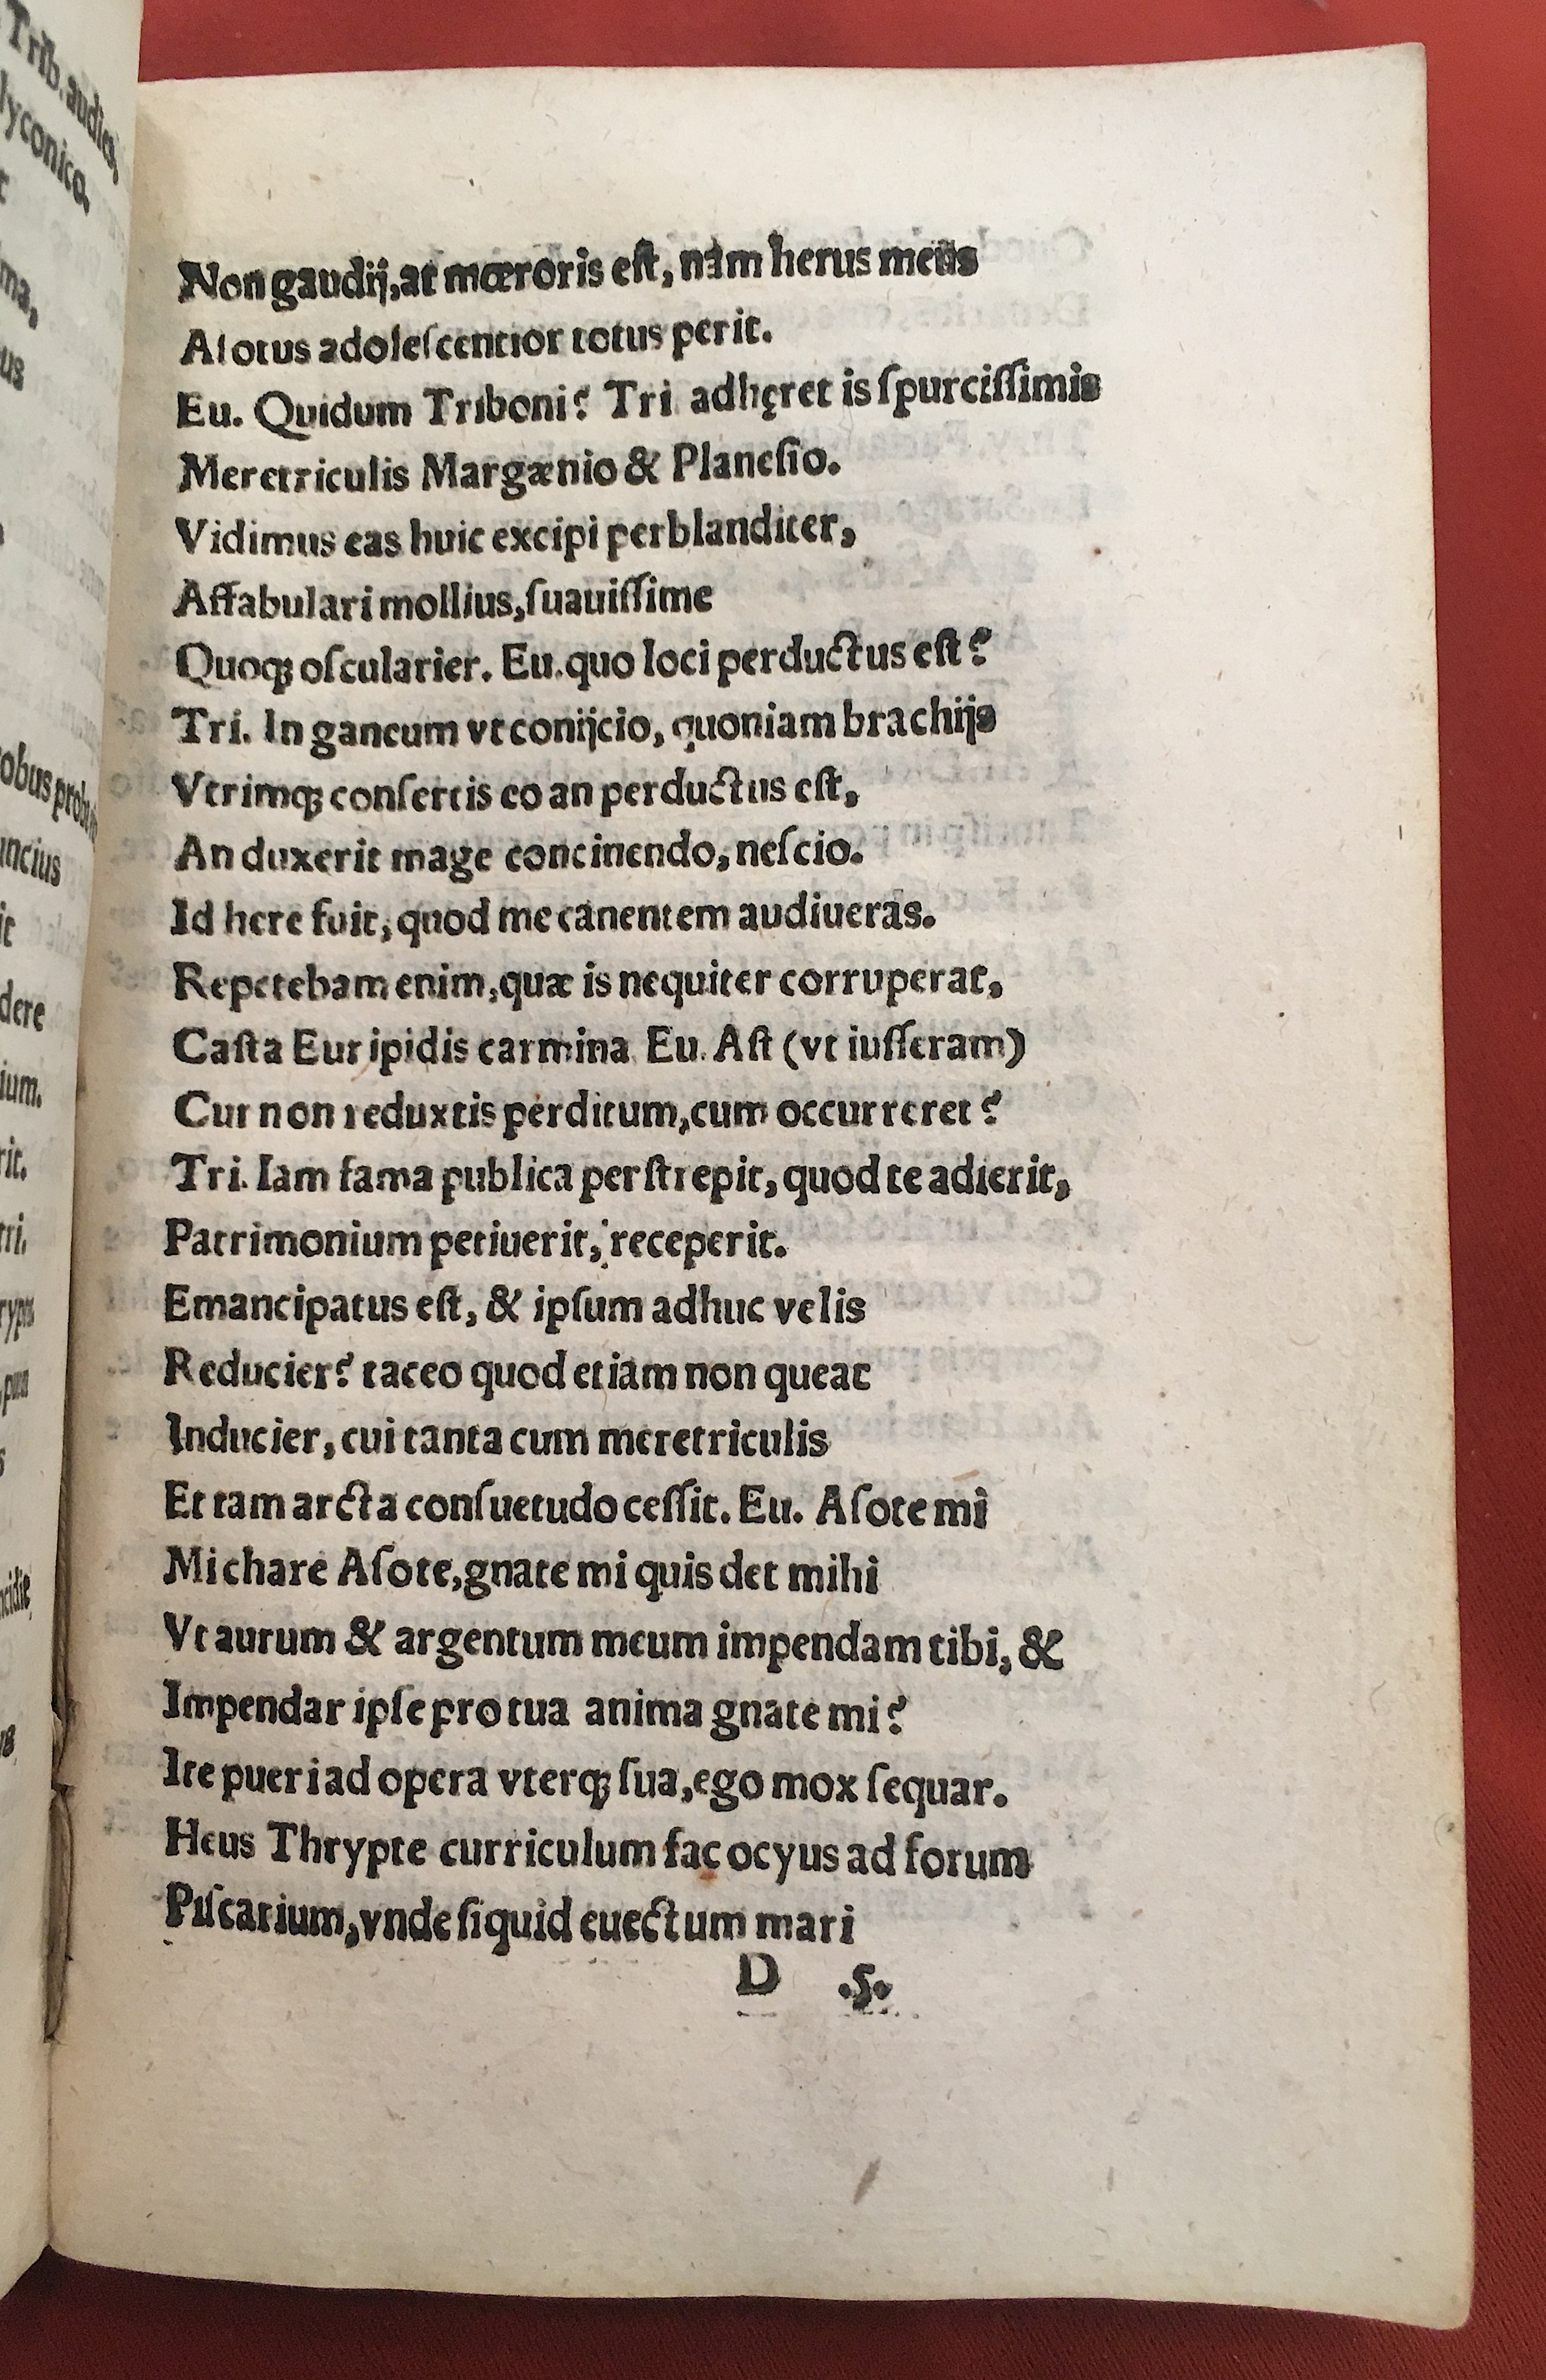 Trib. audies,
lyconico.
r
ma,
us
obus probus
uncius
it
dere
ium.
rit.
tri.
s
Non gaudij, at mœroris eſt, nam herus meus
Aſotus adoleſcentior totus perit.
Eu. Quidum Triboni? Tri adhęret is ſpurciſſimis
Meretriculis Margænio & Planeſio.
Vidimus eas huic excipi perblanditer,
Affabulari mollius, ſuauiſſime
Quoq; oſcularier. Eu. quo loci perductus eſt?
Tri. In ganeum vt conijcio, quoniam brachijs
Vtrimq; conſertis eo an perductus eſt,
An duxerit mage concinendo, neſcio.
Id here fuit, quod me canentem audiueras.
Repetebam enim, quæ is nequiter corruperat,
Caſta Euripidis carmina Eu. Aſt (vt iuſſeram)
Cur non reduxtis perditum, cum occurreret?
Tri. Iam fama publica perſtrepit, quod te adierit,
Patrimonium petiuerit, receperit.
Emancipatus eſt, & ipſum adhuc velis
Reducier? taceo quod etiam non queat
Inducier, cui tanta cum meretriculis
Et tam arcta conſuetudo ceſſit. Eu. Aſote mi
Mi chare Aſote, gnate mi quis det mihi
Vt aurum & argentum meum impendam tibi, &
Impendar ipſe pro tua anima gnate mi?
Ite pueri ad opera vterq; ſua, ego mox ſequar.
Heus Thrypte curriculum fac ocyus ad forum
Piſcarium, vnde ſiquid euectum mari
D .5.